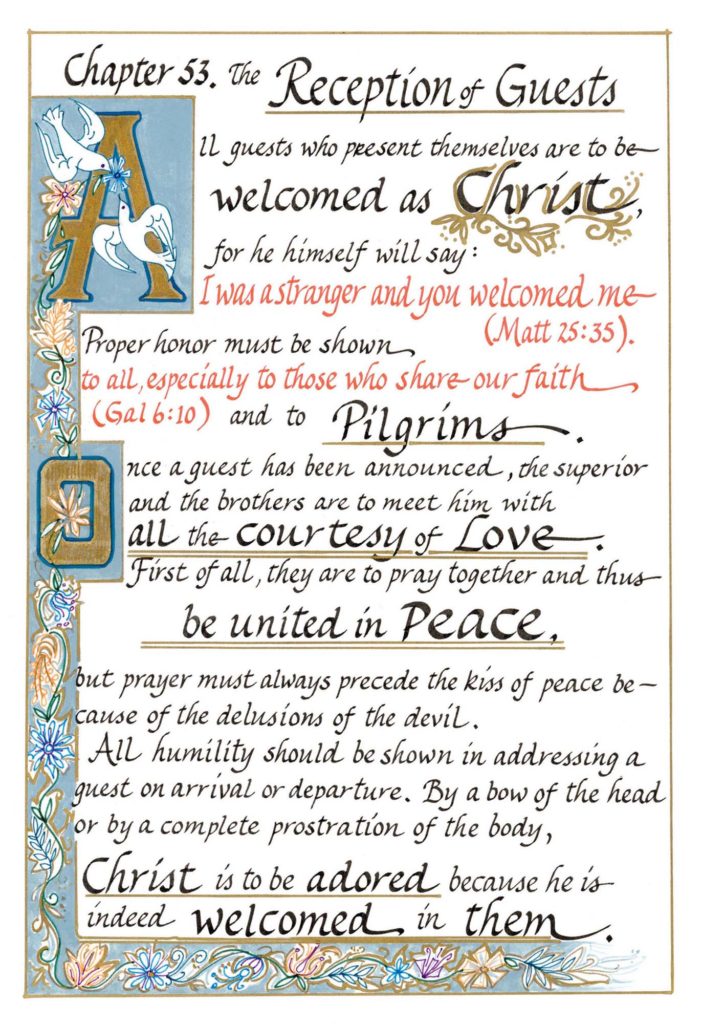 Chapter 53. The Reception of Guests
All guests who present themselves are to be
welcomed as Christ,
for he himself will say:
I was a stranger and you welcomed me
(Matt 25:35).
Proper honor must be shown
to all, especially to those who share our faith
(Gal 6:10) and to Pilgrims.
Once a guest has been announced, the superior
and the brothers are to meet him with
all the courtesy of Love.
First of all, they are to pray together and thus
be united in Peace,
but prayer must always precede the kiss of peace be-
cause of the delusions of the devil.
All humility should be shown in addressing a
guest on arrival or departure. By a bow of the head
or by a complete prostration of the body,
Christ is to be adored because he is
indeed welcomed in them.